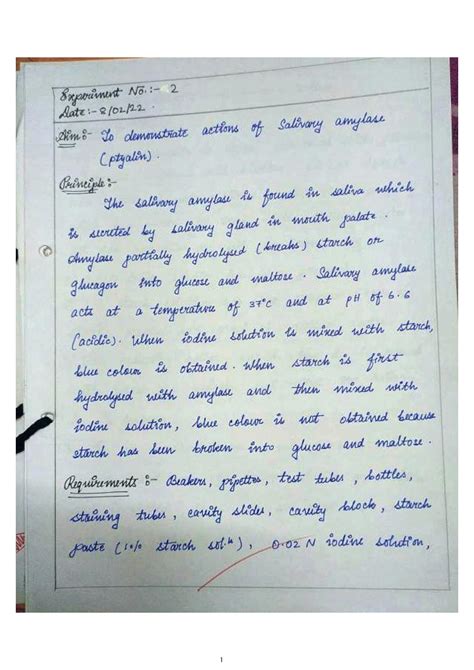 Experiment No.:- 2
Date:- 8/02/22.
Aim:- To demonstrate actions of Salivary amylase
(ptyalin).
Principle:-
The salivary amylase is found in saliva which
is secreted by salivary gland in mouth palate.
Amylase partially hydrolysed (breaks) starch or
glucagon into glucose and maltose. Salivary amylase
acts at a temperature of 37°C and at pH of 6.6
(acidic). When iodine solution is mixed with starch,
blue colour is obtained. When starch is first
hydrolysed with amylase and then mixed with
iodine solution, blue colour is not obtained because
starch has been broken into glucose and maltose.
Requirements:- Beakers, pipettes, test tubes, bottles,
staining tubes, cavity slides, cavity block, starch
paste (1% starch solⁿ), 0.02 N iodine solution,
1